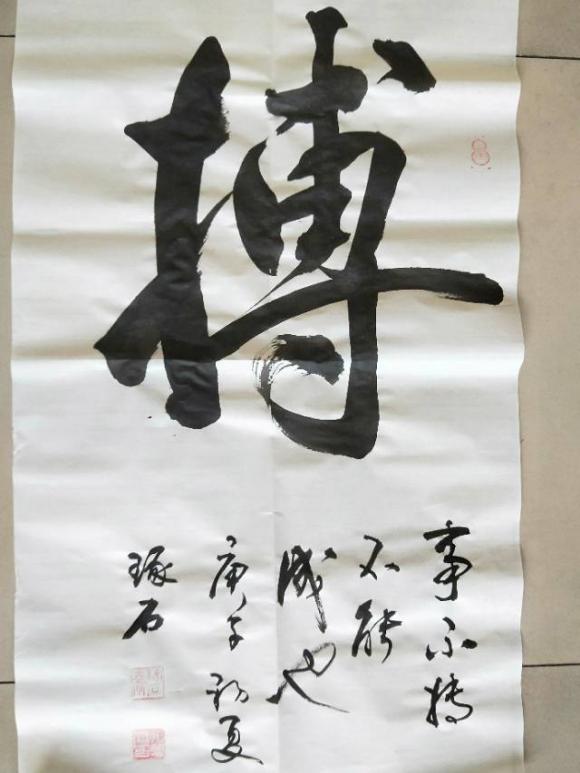 搏
事不搏
不能
成也
庚子初夏
琢石